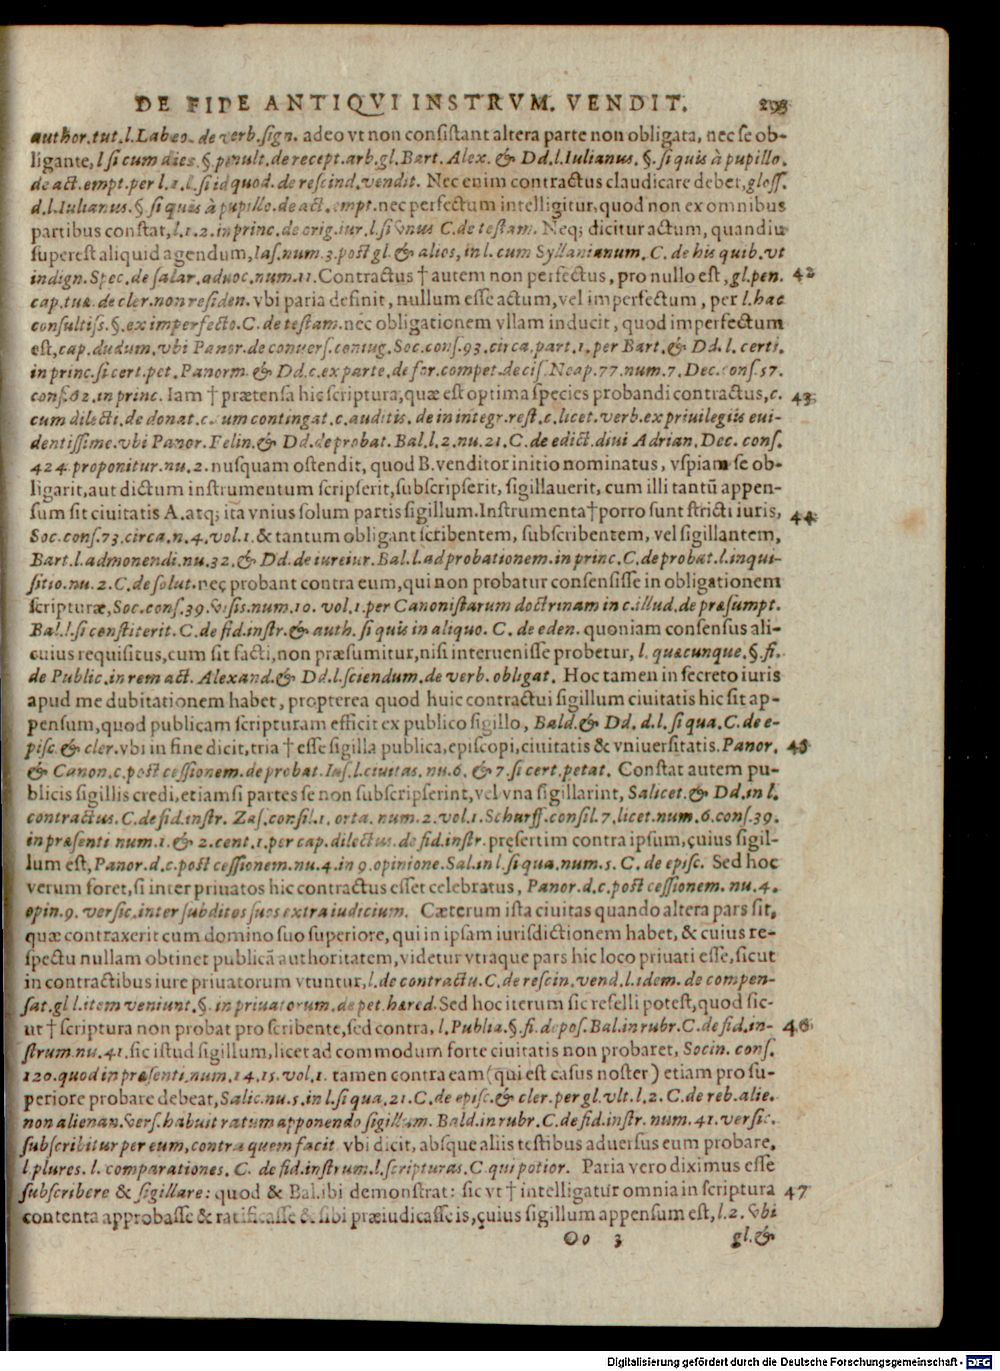 DE FIDE ANTIQVI INSTRVM. VENDIT. 293
author.tut.l.Labeo. de verb.sign. adeo vt non consistant altera parte non obligata, nec se ob-
ligante, l si cum dies. §.penult.de recept.arb.gl.Bart. Alex. & Dd.l.Iulianus. §.si quis à pupillo.
de act.empt.per l.1.l.si id quod. de rescind.vendit. Nec enim contractus claudicare debet, gloss.
d.l.Iulianus.§.si quis à pupillo.de act.empt.nec perfectum intelligitur, quod non ex omnibus
partibus constat, l.1.2.in princ.de orig.iur.l.si vnus C.de testam. Neq; dicitur actum, quandiu
superest aliquid agendum, Ias.num.3.post gl.& alios, in l. cum Syllanianum. C. de his quib.vt
indign.Spec.de salar.aduoc.num.11.Contractus † autem non perfectus, pro nullo est, gl.pen. 42
cap.tuæ.de cler.non residen. vbi paria definit, nullum esse actum, vel imperfectum, per l.hac
consultiss.§.ex imperfecto.C.de testam.nec obligationem vllam inducit, quod imperfectum
est, cap.dudum.vbi Panor.de conuers.coniug.Soc.cons.93.circa.part.1.per Bart.& Dd.l. certi.
in princ.si cert.pet.Panorm.& Dd.c.ex parte.de for.compet.decis.Neap.77.num.7.Dec.cons.57.
cons.62.in princ. Iam † prætensa hic scriptura, quæ est optima species probandi contractus, c. 43
cum dilecti.de donat.c.cum contingat.c.auditis. de in integr.rest.c.licet.verb.ex priuilegiis eui-
dentissime.vbi Panor.Felin.& Dd.de probat.Bal.l.2.nu.21.C.de edict.diui Adrian.Dec. cons.
424.proponitur.nu.2.nusquam ostendit, quod B.venditor initio nominatus, vspiam se ob-
ligarit, aut dictum instrumentum scripserit, subscripserit, sigillauerit, cum illi tantũ appen-
sum sit ciuitatis A.atq; ita vnius solum partis sigillum.Instrumenta † porro sunt stricti iuris, 44
Soc.cons.73.circa.n.4.vol.1.& tantum obligant scribentem, subscribentem, vel sigillantem,
Bart.l.admonendi.nu.32.& Dd.de iureiur.Bal.l.ad probationem.in princ.C.de probat.l.inqui-
sitio.nu.2.C.de solut.neç probant contra eum, qui non probatur consensisse in obligationem
scripturæ, Soc.cons.39.visis.num.10.vol.1.per Canonistarum doctrinam in c.illud.de præsumpt.
Bal.l.si constiterit.C.de fid.instr.& auth. si quis in aliquo. C. de eden. quoniam consensus ali-
cuius requisitus, cum sit facti, non præsumitur, nisi interuenisse probetur, l. quæcunque.§.fi.
de Public.in rem act. Alexand.& Dd.l.sciendum.de verb. obligat. Hoc tamen in secreto iuris
apud me dubitationem habet, propterea quod huic contractui sigillum ciuitatis hic sit ap-
pensum, quod publicam scripturam efficit ex publico sigillo, Bald.& Dd. d.l. si qua.C.de e-
pisc.& cler.vbi in fine dicit, tria † esse sigilla publica, episcopi, ciuitatis & vniuersitatis.Panor. 45
& Canon.c.post cessionem.de probat.Ias.l.ciuitas.nu.6. & 7.si cert.petat. Constat autem pu-
blicis sigillis credi, etiamsi partes se non subscripserint, vel vna sigillarint, Salicet.& Dd.in l.
contractus.C.de fid.instr. Zas.consil.1.orta.num.2.vol.1.Schurff.consil.7.licet.num.6.cons.39.
in præsenti num.1.& 2.cent.1.per cap.dilectus.de fid.instr.pręsertim contra ipsum, çuius sigil-
lum est, Panor.d.c.post cessionem.nu.4.in 9.opinione.Sal.in l.si qua.num.5.C. de episc. Sed hoc
verum foret, si inter priuatos hic contractus esset celebratus, Panor.d.c.post cessionem. nu.4.
opin.9. versic.inter subditos suos extra iudicium. Cæterum ista ciuitas quando altera pars sit,
quæ contraxerit cum domino suo superiore, qui in ipsam iurisdictionem habet, & cuius re-
spectu nullam obtinet publicã authoritatem, videtur vtraque pars hic loco priuati esse, sicut
in contractibus iure priuatorum vtuntur, l.de contractu.C.de rescin.vend.l.idem.de compen-
sat.gl l.item veniunt.§. in priuatorum.de pet.hæred.Sed hoc iterum sic refelli potest, quod sic-
ut † scriptura non probat pro scribente, sed contra, l.Publia.§.fi.depos.Bal.in rubr.C.de fid.in- 46
strum.nu.41.sic istud sigillum, licet ad commodum forte ciuitatis non probaret, Socin. cons.
120.quod in præsenti.num.14.15.vol.1. tamen contra eam (q̃ui est casus noster) etiam pro su-
periore probare debeat, Salic.nu.5.in l.si qua.21.C.de episc.& cler.per gl.vlt.l.2.C.de reb.alie.
non alienan.vers.habuit ratum apponendo sigillum. Bald.in rubr.C.de fid.instr. num.41.versic.
subscribitur per eum, contra quem facit. vbi dicit, absque aliis testibus aduersus eum probare,
l.plures.l. comparationes. C. de fid.instrum.l.scripturas.C.qui potior. Paria vero diximus esse
subscribere & sigillare: quod & Bal.ibi demonstrat: sic vt † intelligatur omnia in scriptura 47
contenta approbasse & ratificasse & sibi præiudicasse is, çuius sigillum appensum est, l.2. vbi
Oo 3 gl.&
Digitalisierung gefördert durch die Deutsche Forschungsgemeinschaft - DFG